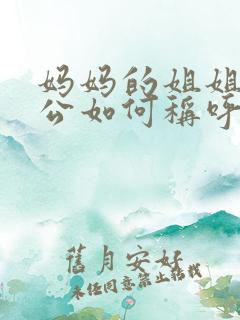 妈妈的姐姐
公如何稱呼
舊月安好
未经同意禁止转载